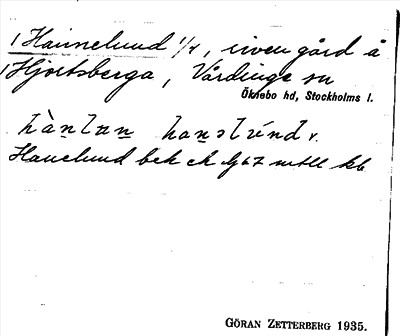 Hannelund 1/4, riven gård å
Hjortsberga, Vårdinge sn
Öknebo hd, Stockholms l.
hànlun hanəlúnd v.
Hanelund bek
GÖRAN ZETTERBERG 1935.